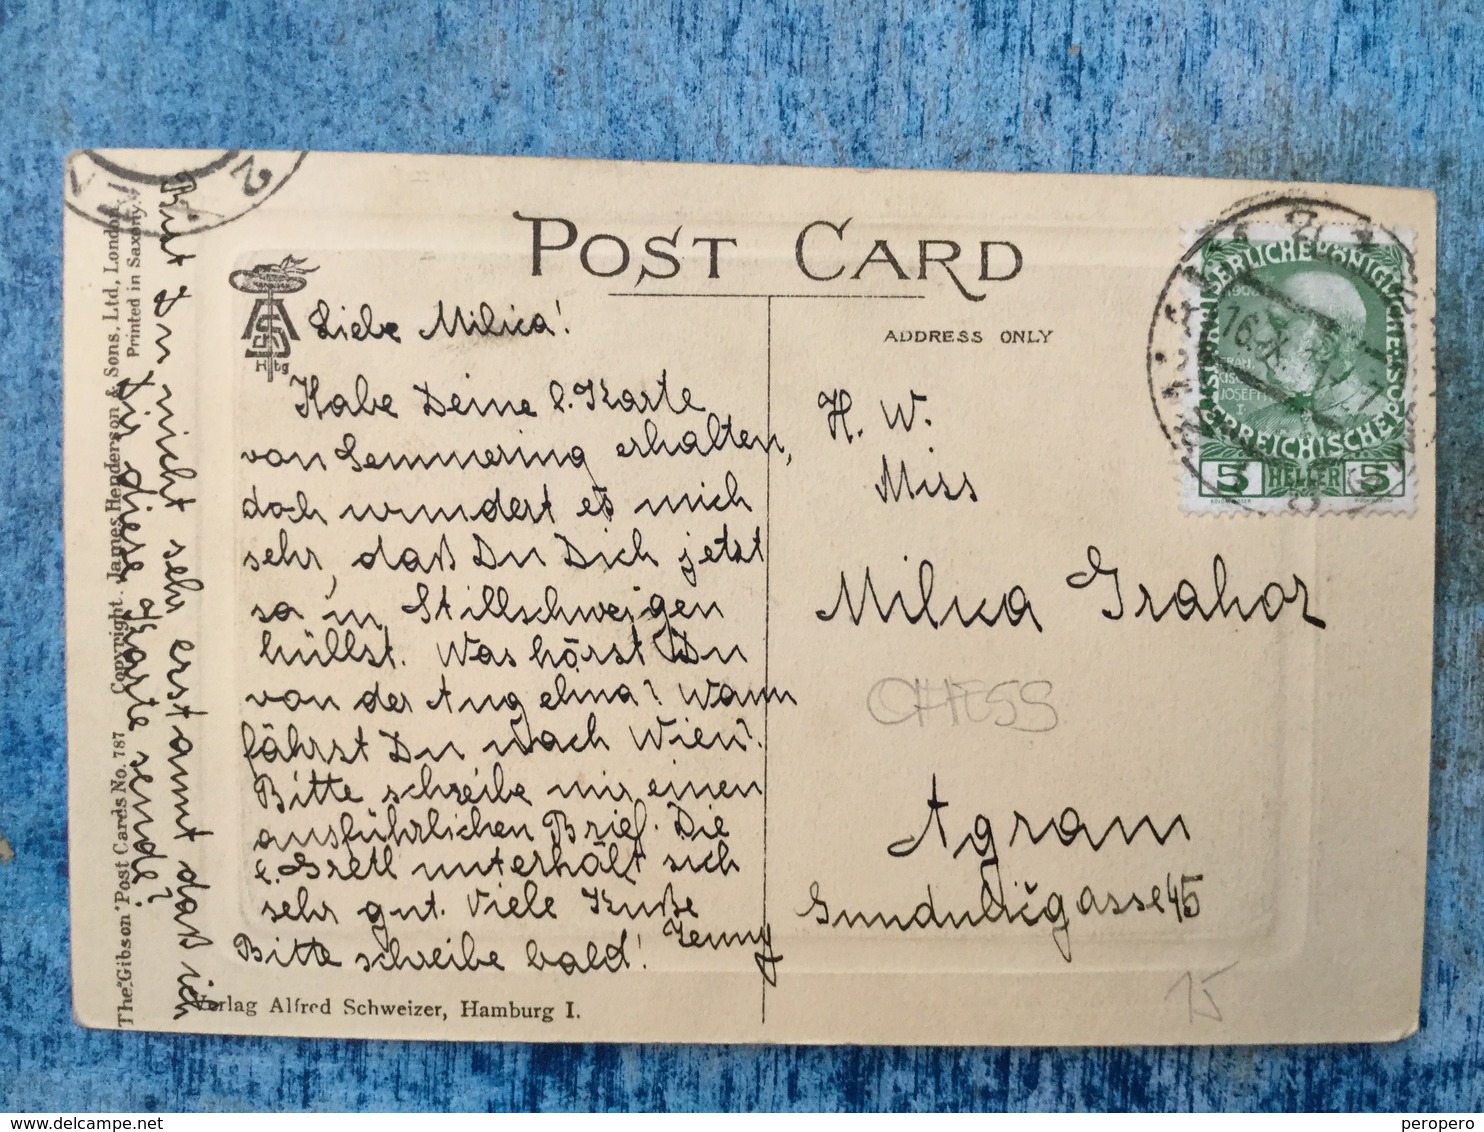 POST CARD
ADDRESS ONLY
Liebe Milica!
Habe Deine l. Karte
von Semmering erhalten,
doch wundert es mich
sehr, daß Du Dich jetzt
so in Stillschweigen
hüllst. Was hörst Du
von der Angelina? Wann
fährst Du nach Wien?
Bitte schreibe mir einen
ausführlichen Brief. Die
l. Gretl unterhält sich
sehr gut. Viele Kuße
Jenny
Bitte schreibe bald!
Bist Du nicht sehr erstaunt daß ich
Dir diese Karte sende?
H. W.
Miss
Milica Grahor
Agram
Gundulićgasse 45
CHESS
15
The "Gibson" Post Cards No. 787 Copyright. James Henderson & Sons, Ltd, London.
Printed in Saxony.
Verlag Alfred Schweizer, Hamburg I.
ASS
Hbg
KAISERLICHE KÖNIGLICHE
ÖSTERREICHISCHE
1908
FRANZ
JOSEPH
I
5 HELLER 5
16.IX.
7
2
peropero